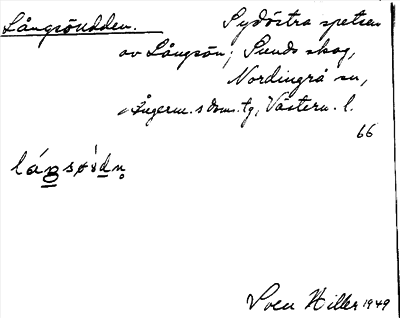 Långsöudden. Sydöstra spetsen
av Långsön, Sunds skog,
Nordingrå sn,
Ångerm. s dom. tg, Västern. l.
66
Sven Hiller 1949